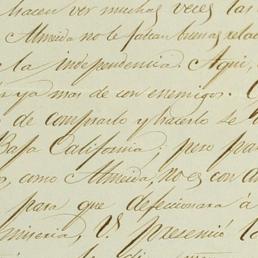 hacen ver muchas veces las
Almeida no le faltan buenas rela
la independencia. Aqui,
ya mas de cien enemigos.
de comprarlo y hacerlo se
Baja California; pero pa
como Almeida, no es con
para que defeccionara á
miseria, V. presenció